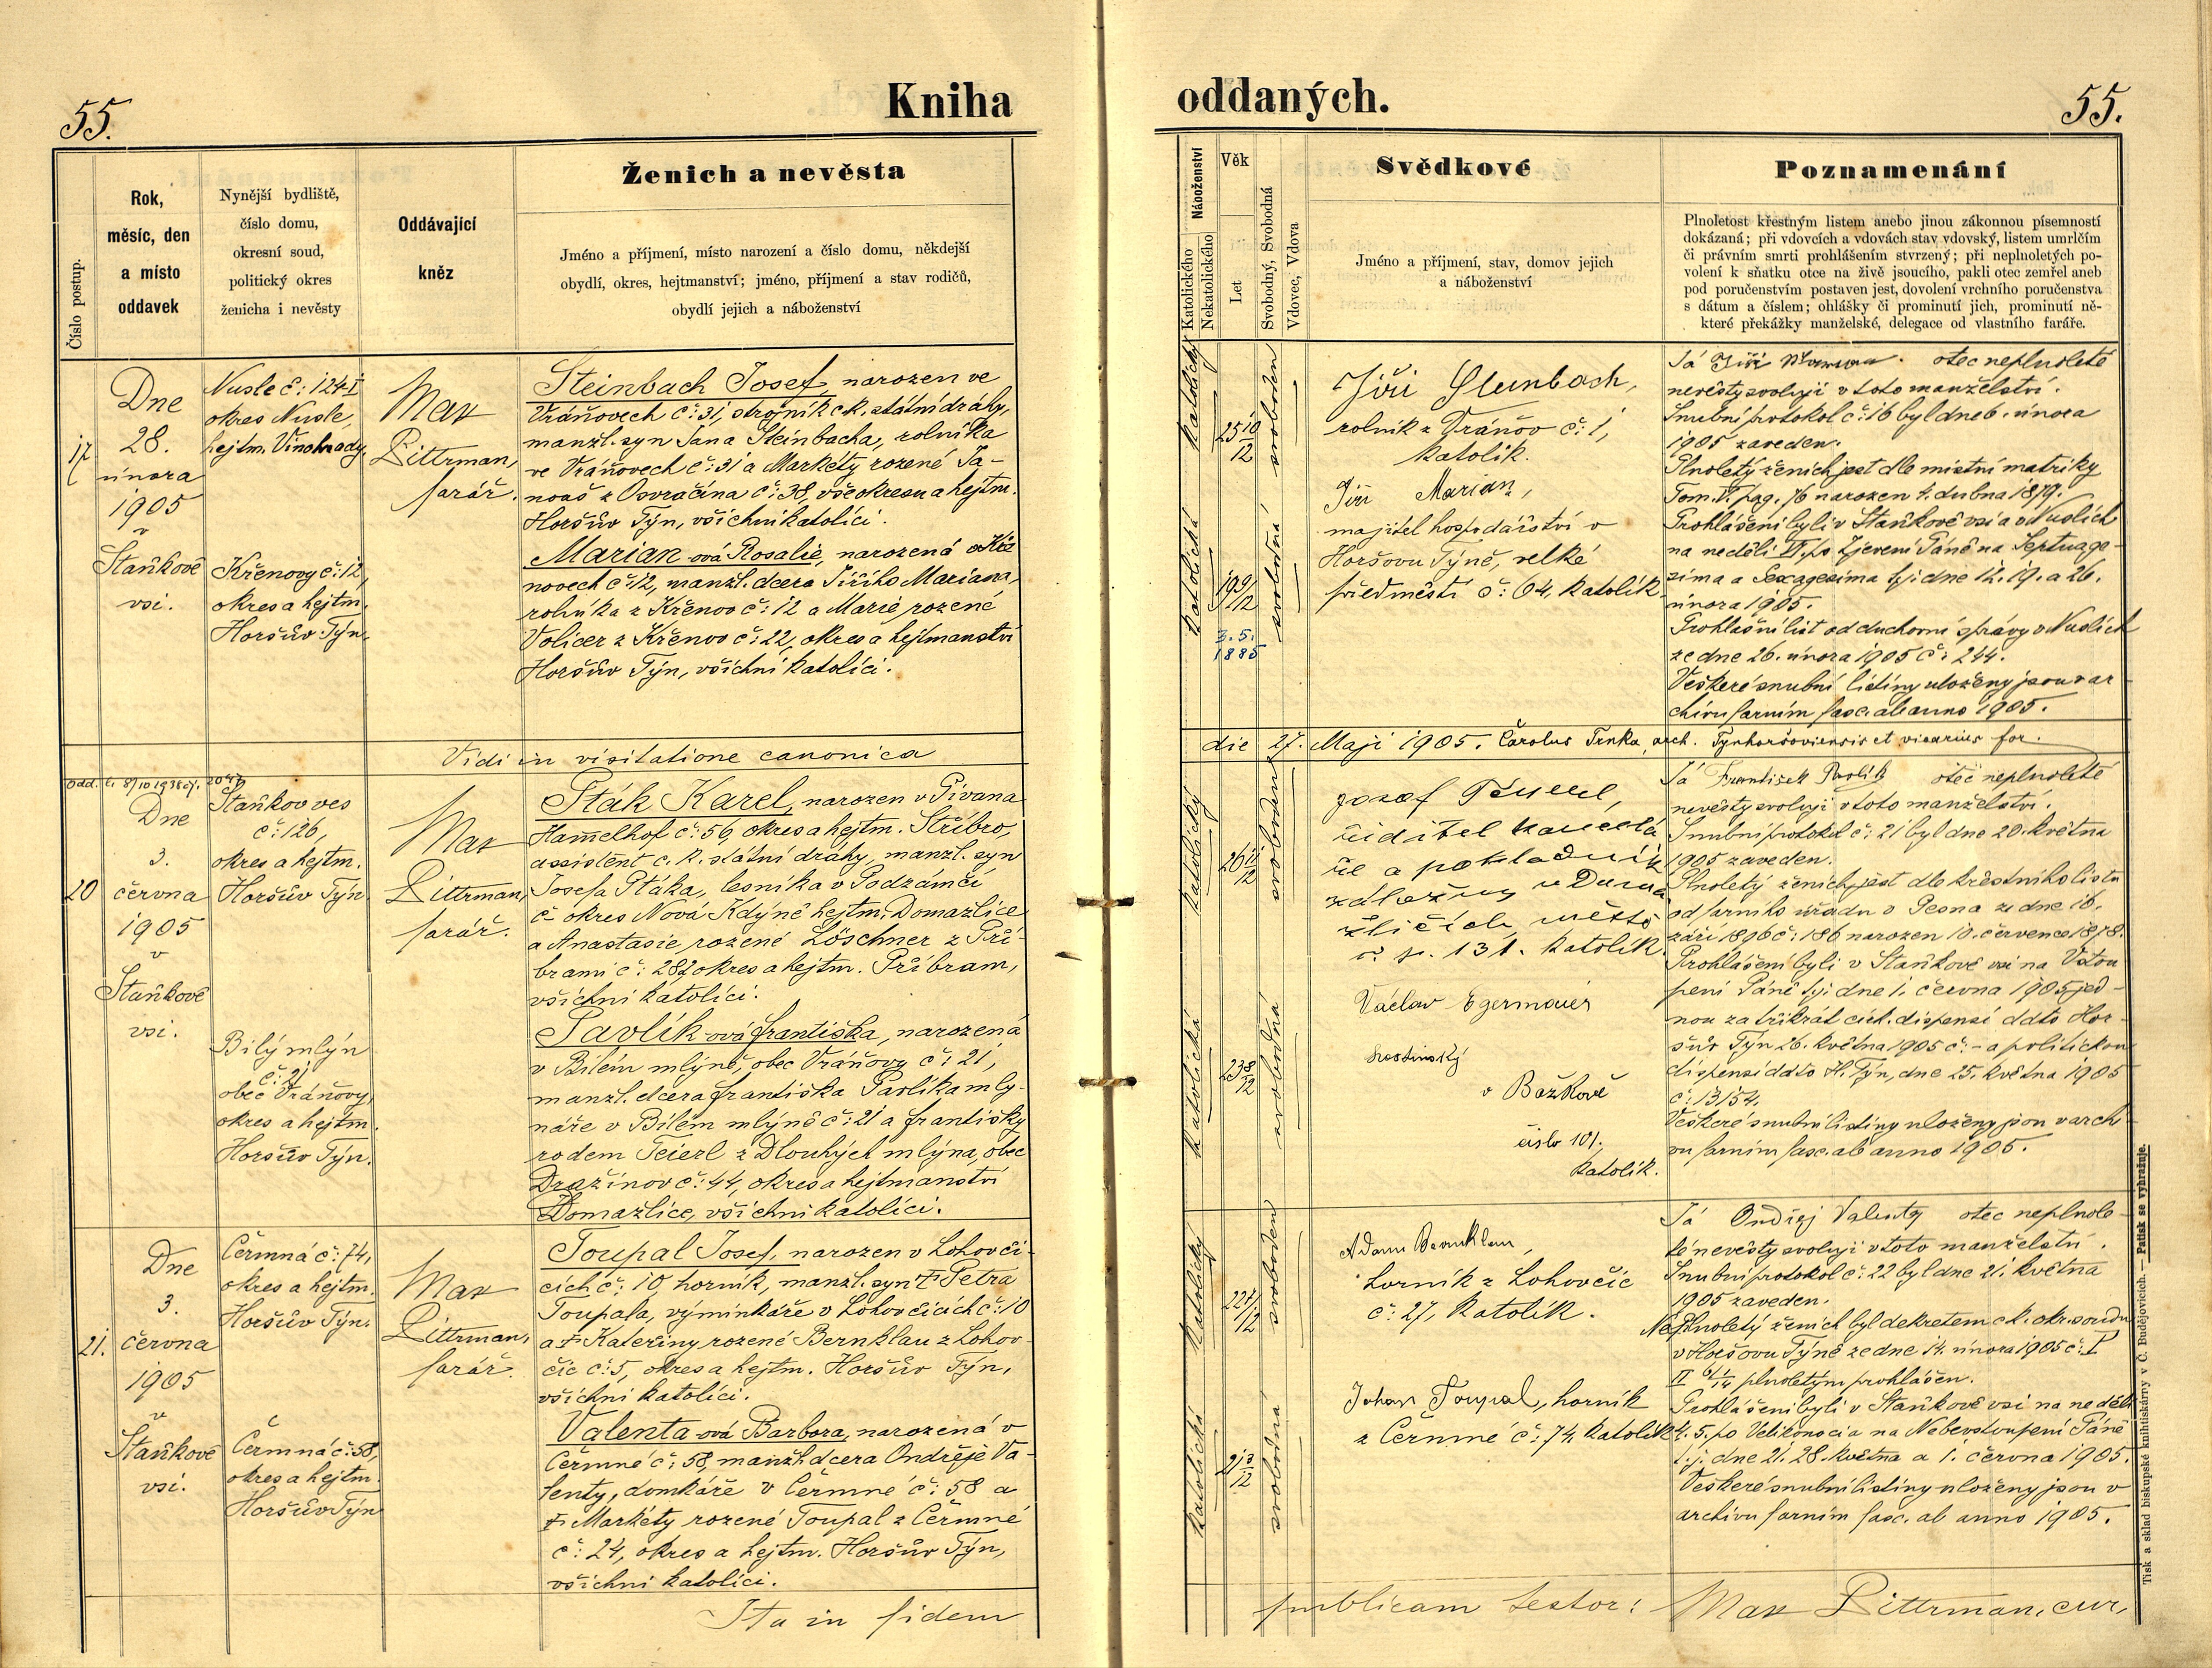 55.
Kniha
oddaných.
55.
Číslo postup.
Rok,
měsíc, den
a místo
oddavek
Nynější bydliště,
číslo domu,
okresní soud,
politický okres
ženicha i nevěsty
Oddávající
kněz
Ženich a nevěsta
Jméno a příjmení, místo narození a číslo domu, někdejší
obydlí, okres, hejtmanství; jméno, příjmení a stav rodičů,
obydlí jejich a náboženství
Náboženství
Katolického
Nekatolického
Věk
Let
Svobodný, Svobodná
Vdovec, Vdova
Svědkové
Jméno a příjmení, stav, domov jejich
a náboženství
Poznamenání
Plnoletost křestným listem anebo jinou zákonnou písemností
dokázaná; při vdovcích a vdovách stav vdovský, listem umrlčím
či právním smrti prohlášením stvrzený; při neplnoletých po-
volení k sňatku otce na živě jsoucího, pakli otec zemřel aneb
pod poručenstvím postaven jest, dovolení vrchního poručenstva
s dátum a číslem; ohlášky či prominutí jich, prominutí ně-
které překážky manželské, delegace od vlastního faráře.
17
Dne
28.
února
1905
v
Staňkově
vsi.
Nusle č: 124-I
okres Nusle,
hejtm. Vinohrady
Křenovy č: 12,
okres a hejtm.
Horšův Týn.
Max
Pittrman,
farář.
Steinbach Josef, narozen ve
Vráňovech č: 31, strojník c.k. státní dráhy,
manžl. syn Jana Steinbacha, rolníka
ve Vráňovech č: 31 a Markéty rozené Ja-
noš z Osvračína č: 38, vše okresu a hejtm.
Horšův Týn, všichni katolíci.
Marian-ová Rosalie, narozená v Kře
novech č: 12, manžl. dcera Jiřího Mariana,
rolníka z Křenov č: 12 a Marie rozené
Volicer z Křenov č: 22, okres a hejtmanství
Horšův Týn, všichni katolíci.
katolický
25 10/12
svoboden
katolická
19 9/12
svobodná
3. 5.
1885
Jiří Steinbach,
rolník z Vráňov č: 1,
katolík.
Jiří Marian,
majitel hospodářství v
Horšovu Týně, velké
předměstí č: 64. katolík
Já Jiří Marian. otec neplnoleté
nevěsty svoluji v toto manželství.
Snubní protokol č: 16 byl dne 6. února
1905 zaveden.
Plnoletý ženich jest dle místní matriky
Tom. V. pag. 76 narozen 4. dubna 1879.
Prohlášeni byli v Staňkově vsi a v Nuslích
na neděli VI. po Zjevení Páně na Septuage-
sima a Sexagesima t.j. dne 12. 19. a 26.
února 1905.
Prohlašní list od duchovní správy v Nuslích
ze dne 26. února 1905 č: 244.
Veškeré snubní listiny uloženy jsou v ar
chivu farním fasc. ab anno 1905.
Vidi in visitatione canonica
die 27. Maji 1905. Carolus Trnka, arch. Tynhoršoviensis et vicarius for.
20
Dne
3.
června
1905
v
Staňkově
vsi.
Staňkov ves
č: 126,
okres a hejtm.
Horšův Týn
Bílý mlýn
č: 21
obec Vráňovy,
okres a hejtm.
Horšův Týn.
Max
Pittrman,
farář.
Pták Karel, narozen v Pivana
Hammelhof č: 56, okres a hejtm. Stříbro,
assistent c. k. státní dráhy, manžl. syn
Josefa Ptáka, lesníka v Podzámčí
č okres Nová Kdýně hejtm. Domažlice
a Anastasie rozené Löschner z Pří-
brami č: 282 okres a hejtm. Příbram,
všichni katolíci.
Pavlík-ová Františka, narozená
v Bílém mlýně, obec Vráňovy č: 21,
manžl. dcera Františka Pavlíka mly-
náře v Bílém mlýně č: 21 a Františky
rodem Teierl z Dlouhých mlýna, obec
Dražinov č: 44, okres a hejtmanství
Domažlice, všichni katolíci.
katolický
26 11/12
svoboden
katolická
23 8/12
svobodná
Josef
ředitel kancelá
ře a pokladník
záložny v Doma
žlicích, město
č p. 131. katolík.
Václav Egermaier
hostinský
v Božkově
číslo 101.
katolík.
Já František Pavlík otec neplnoleté
nevěsty svoluji v toto manželství.
Snubní protokol č: 21 byl dne 20. května
1905 zaveden.
Plnoletý ženich jest dle křestního listu
od farního úřadu v Pesna ze dne 16.
září 1896 č: 186 narozen 10. července 1878.
Prohlášeni byli v Staňkově vsi na Vstou
pení Páně t.j. dne 1. června 1905 jed-
nou za třikrát círk. dispensí ddto Hor-
šův Týn 26. května 1905 č: - a politickou
dispensí ddto H. Týn, dne 25. května 1905
č: 13154.
Veškeré snubní listiny uloženy jsou v archi
vu farním fasc. ab anno 1905.
21.
Dne
3.
června
1905
v
Staňkově
vsi.
Čermná č: 74,
okres a hejtm.
Horšův Týn.
Čermná č: 58,
okres a hejtm.
Horšův Týn
Max
Pittrman,
farář.
Toupal Josef, narozen v Lohovči-
cích č: 10, horník, manžl. syn † Petra
Toupala, výminkáře v Lohovčicích č: 10
a † Kateřiny rozené Bernklau z Lohov-
čic č: 5, okres a hejtm. Horšův Týn,
všichni katolíci.
Valenta-ová Barbora, narozená v
Čermné č: 58, manžl. dcera Ondřeje Va-
lenty, domkáře v Čermné č: 58 a
† Markéty rozené Toupal z Čermné
č: 24, okres a hejtm. Horšův Týn,
všichni katolíci.
katolický
svoboden
katolická
21 3/12
svobodná
Adam Bernklau,
horník z Lohovčic
č: 27, katolík.
Johan Toupal, horník
z Čermné č: 74, katolík
Já Ondřej Valenty otec neplnole-
té nevěsty svoluji v toto manželství.
Snubní protokol č: 22 byl dne 21. května
1905 zaveden.
Neplnoletý ženich byl dekretem c.k. okr. soudu
v Horšovu Týně ze dne 14. února 1905 č: I
plnoletým prohlášen.
Prohlášeni byli v Staňkově vsi na neděli
4. 5. po Velikonoci a na Nebevstoupení Páně
t.j. dne 21. 28. května a 1. června 1905.
Veškeré snubní listiny uloženy jsou v
archivu farním fasc. ab anno 1905.
Ita in fidem
publicam testor: Max Pittrman, cur.
Tisk a sklad biskupské knihtiskárny v Č. Budějovicích. — Patisk se vyhražuje.